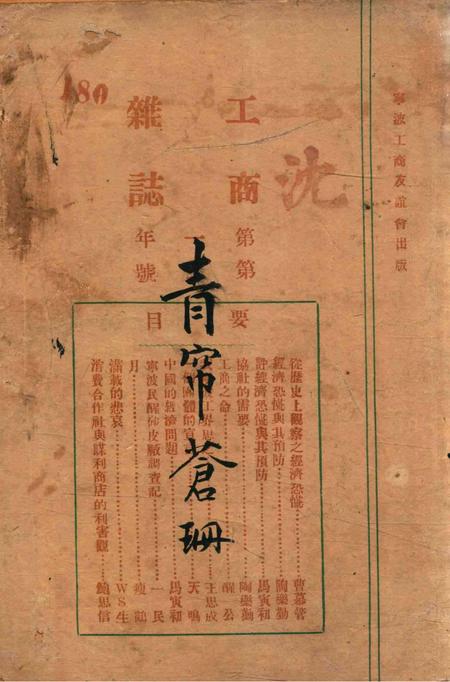 寧波工商友誼會出版
沈
工商
雜誌
第 年
第 號
要目
180
青帘蒼珊
從歷史上觀察之經濟恐慌………曹慕管
經濟恐慌與其預防………陶樂勤
評經濟恐慌與其預防………馬寅初
協社的需要………陶樂勤
工商之命………醒公
王思成
天鳴
中國的經濟問題………馬寅初
寧波民醒棉皮廠調查記………一民
月………瘦鶴
滿載的悲哀………WS生
消費合作社與謀利商店的利害觀………鮑思信